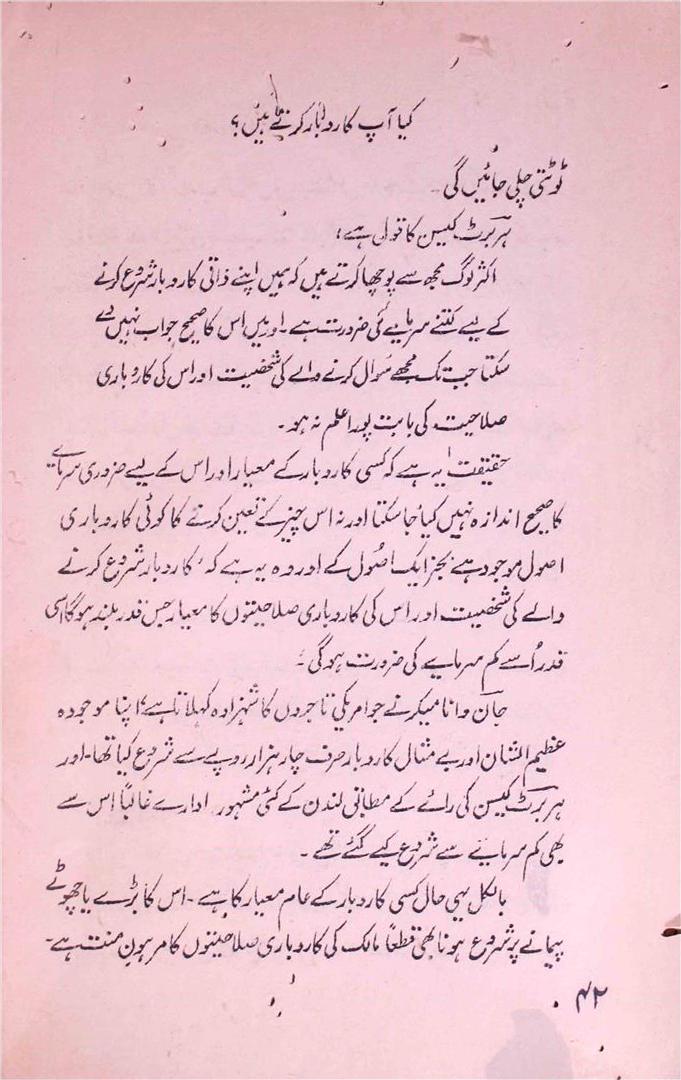 کیا آپ کاروبار کرتے ہیں؟
ٹوٹتی چلی جائیں گی۔
ہربرٹ کیسن کا قول ہے:
اکثر لوگ مجھ سے پوچھا کرتے ہیں کہ ہمیں اپنے ذاتی کاروبار شروع کرنے
کے لیے کتنے سرمایے کی ضرورت ہے۔ اور میں اس کا صحیح جواب نہیں دے
سکتا جب تک مجھے سوال کرنے والے کی شخصیت اور اس کی کاروباری
صلاحیت کی بابت پورا علم نہ ہو۔
حقیقت یہ ہے کہ کسی کاروبار کے معیار اور اس کے لیے ضروری سرمایے
کا صحیح اندازہ نہیں کیا جا سکتا اور نہ اس چیز کے تعین کرنے کا کوئی کاروباری
اصول موجود ہے بجز ایک اصول کے اور وہ یہ ہے کہ ’کاروبار شروع کرنے
والے کی شخصیت اور اس کی کاروباری صلاحیتوں کا معیار جس قدر بلند ہوگا اسی
قدر اُسے کم سرمایے کی ضرورت ہوگی‘۔
جان وانا میکر نے جو امریکی تاجروں کا شہزادہ کہلاتا ہے؛ اپنا موجودہ
عظیم الشان اور بے مثال کاروبار صرف چار ہزار روپے سے شروع کیا تھا۔ اور
ہربرٹ کیسن کی رائے کے مطابق لندن کے کئی مشہور ادارے غالباً اس سے
بھی کم سرمایے سے شروع کیے گئے تھے۔
بالکل یہی حال کسی کاروبار کے عام معیار کا ہے۔ اس کا بڑے یا چھوٹے
پیمانے پر شروع ہونا بھی قطعاً مالک کی کاروباری صلاحیتوں کا مرہونِ منت ہے۔
۴۲